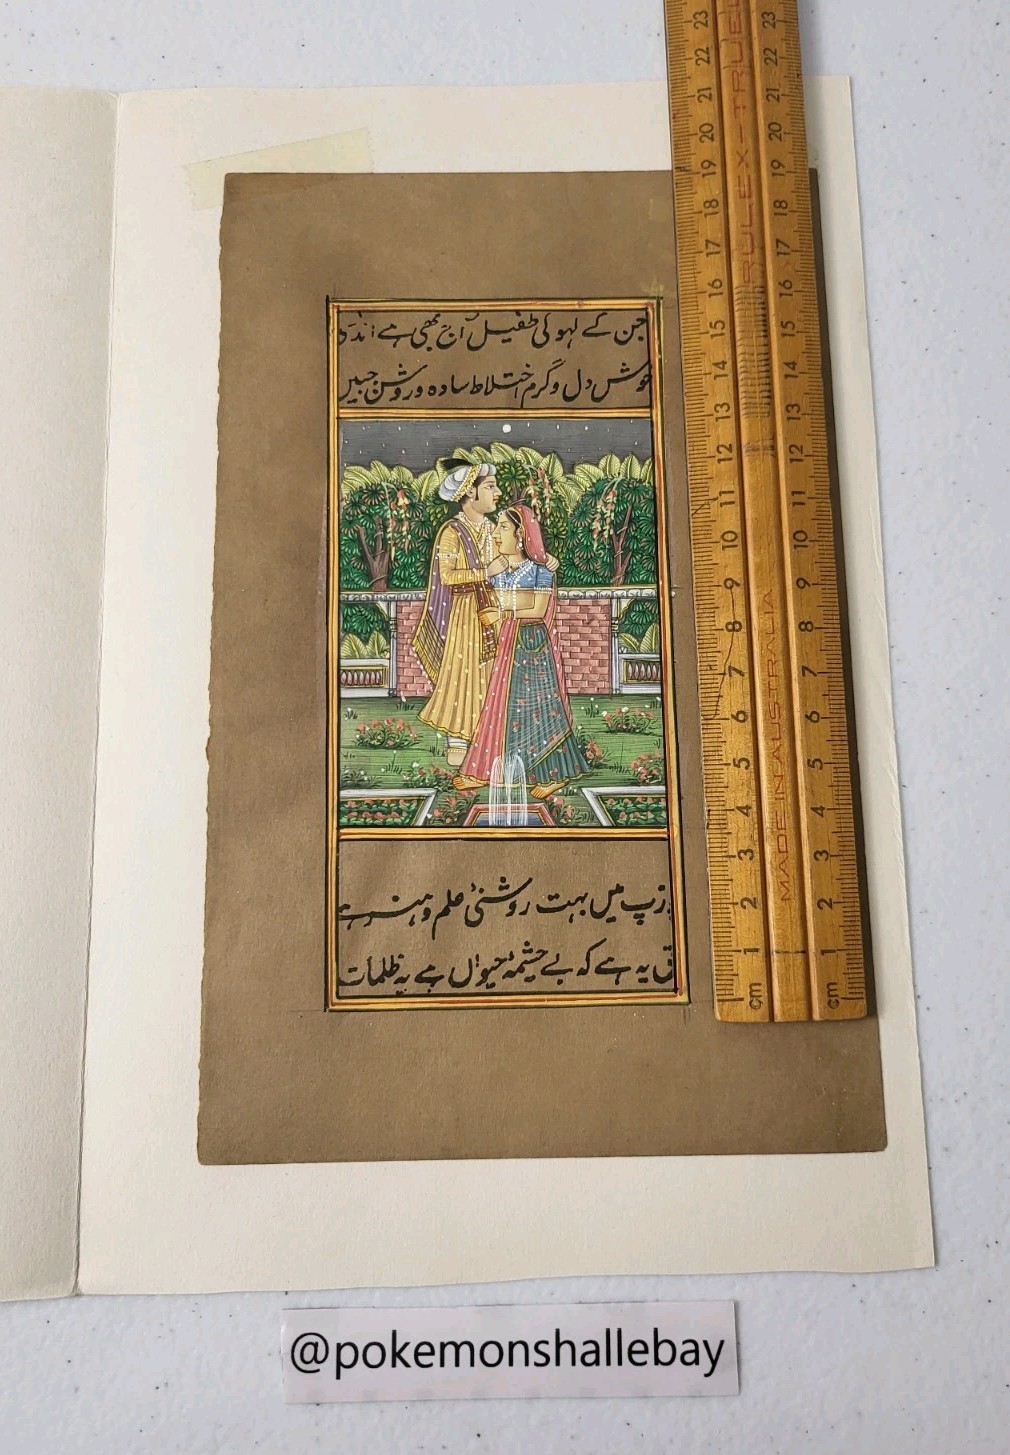 جن کے لہو کی طفیل آج بھی ہے
خوش دل و گرم اختلاط سادہ و روشن جبیں
میں بہت روشنئ علم و ہنر ہے
یہ ہے کہ بے چشمۂ حیواں ہے یہ ظلمات
RULEX-TRUE
MADE IN AUSTRALIA
23 22 21 20 19 18 17 16 15 14 13 12 11 10 9 8 7 6 5 4 3 2 1 cm
23 22 21 20 19 18 17 16 15 14 13 12 11 10 9 8 7 6 5 4 3 2 1 cm
@pokemonshallebay